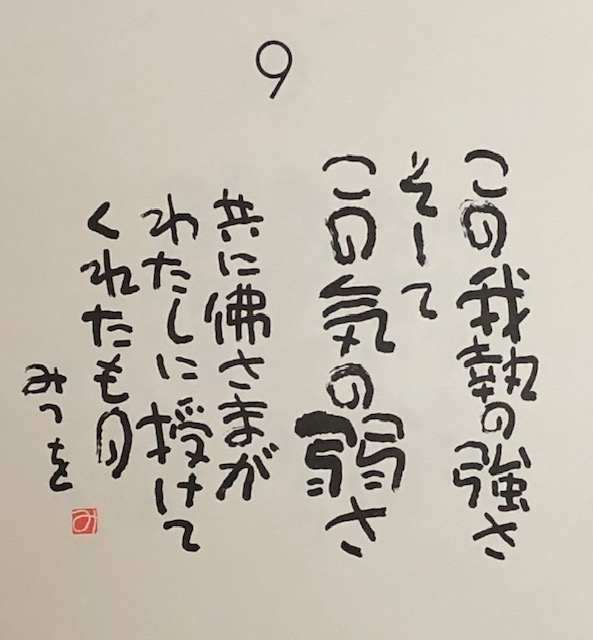 9
この我執の強さ
そして
この気の弱さ
共に佛さまが
わたしに授けて
くれたもの
みつを
み